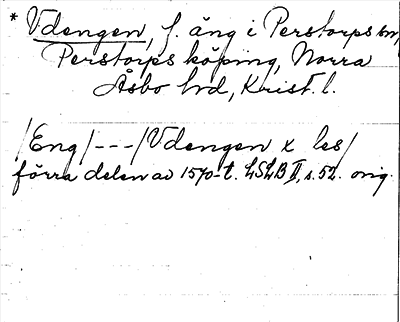 * Vdengen, f. äng i Perstorps sn,
Perstorps köping, Norra
Åsbo hd, Krist. l.
/Eng/---/Vdengen x les/
förra delen av 1570-t. LSLB II, s. 52. orig.